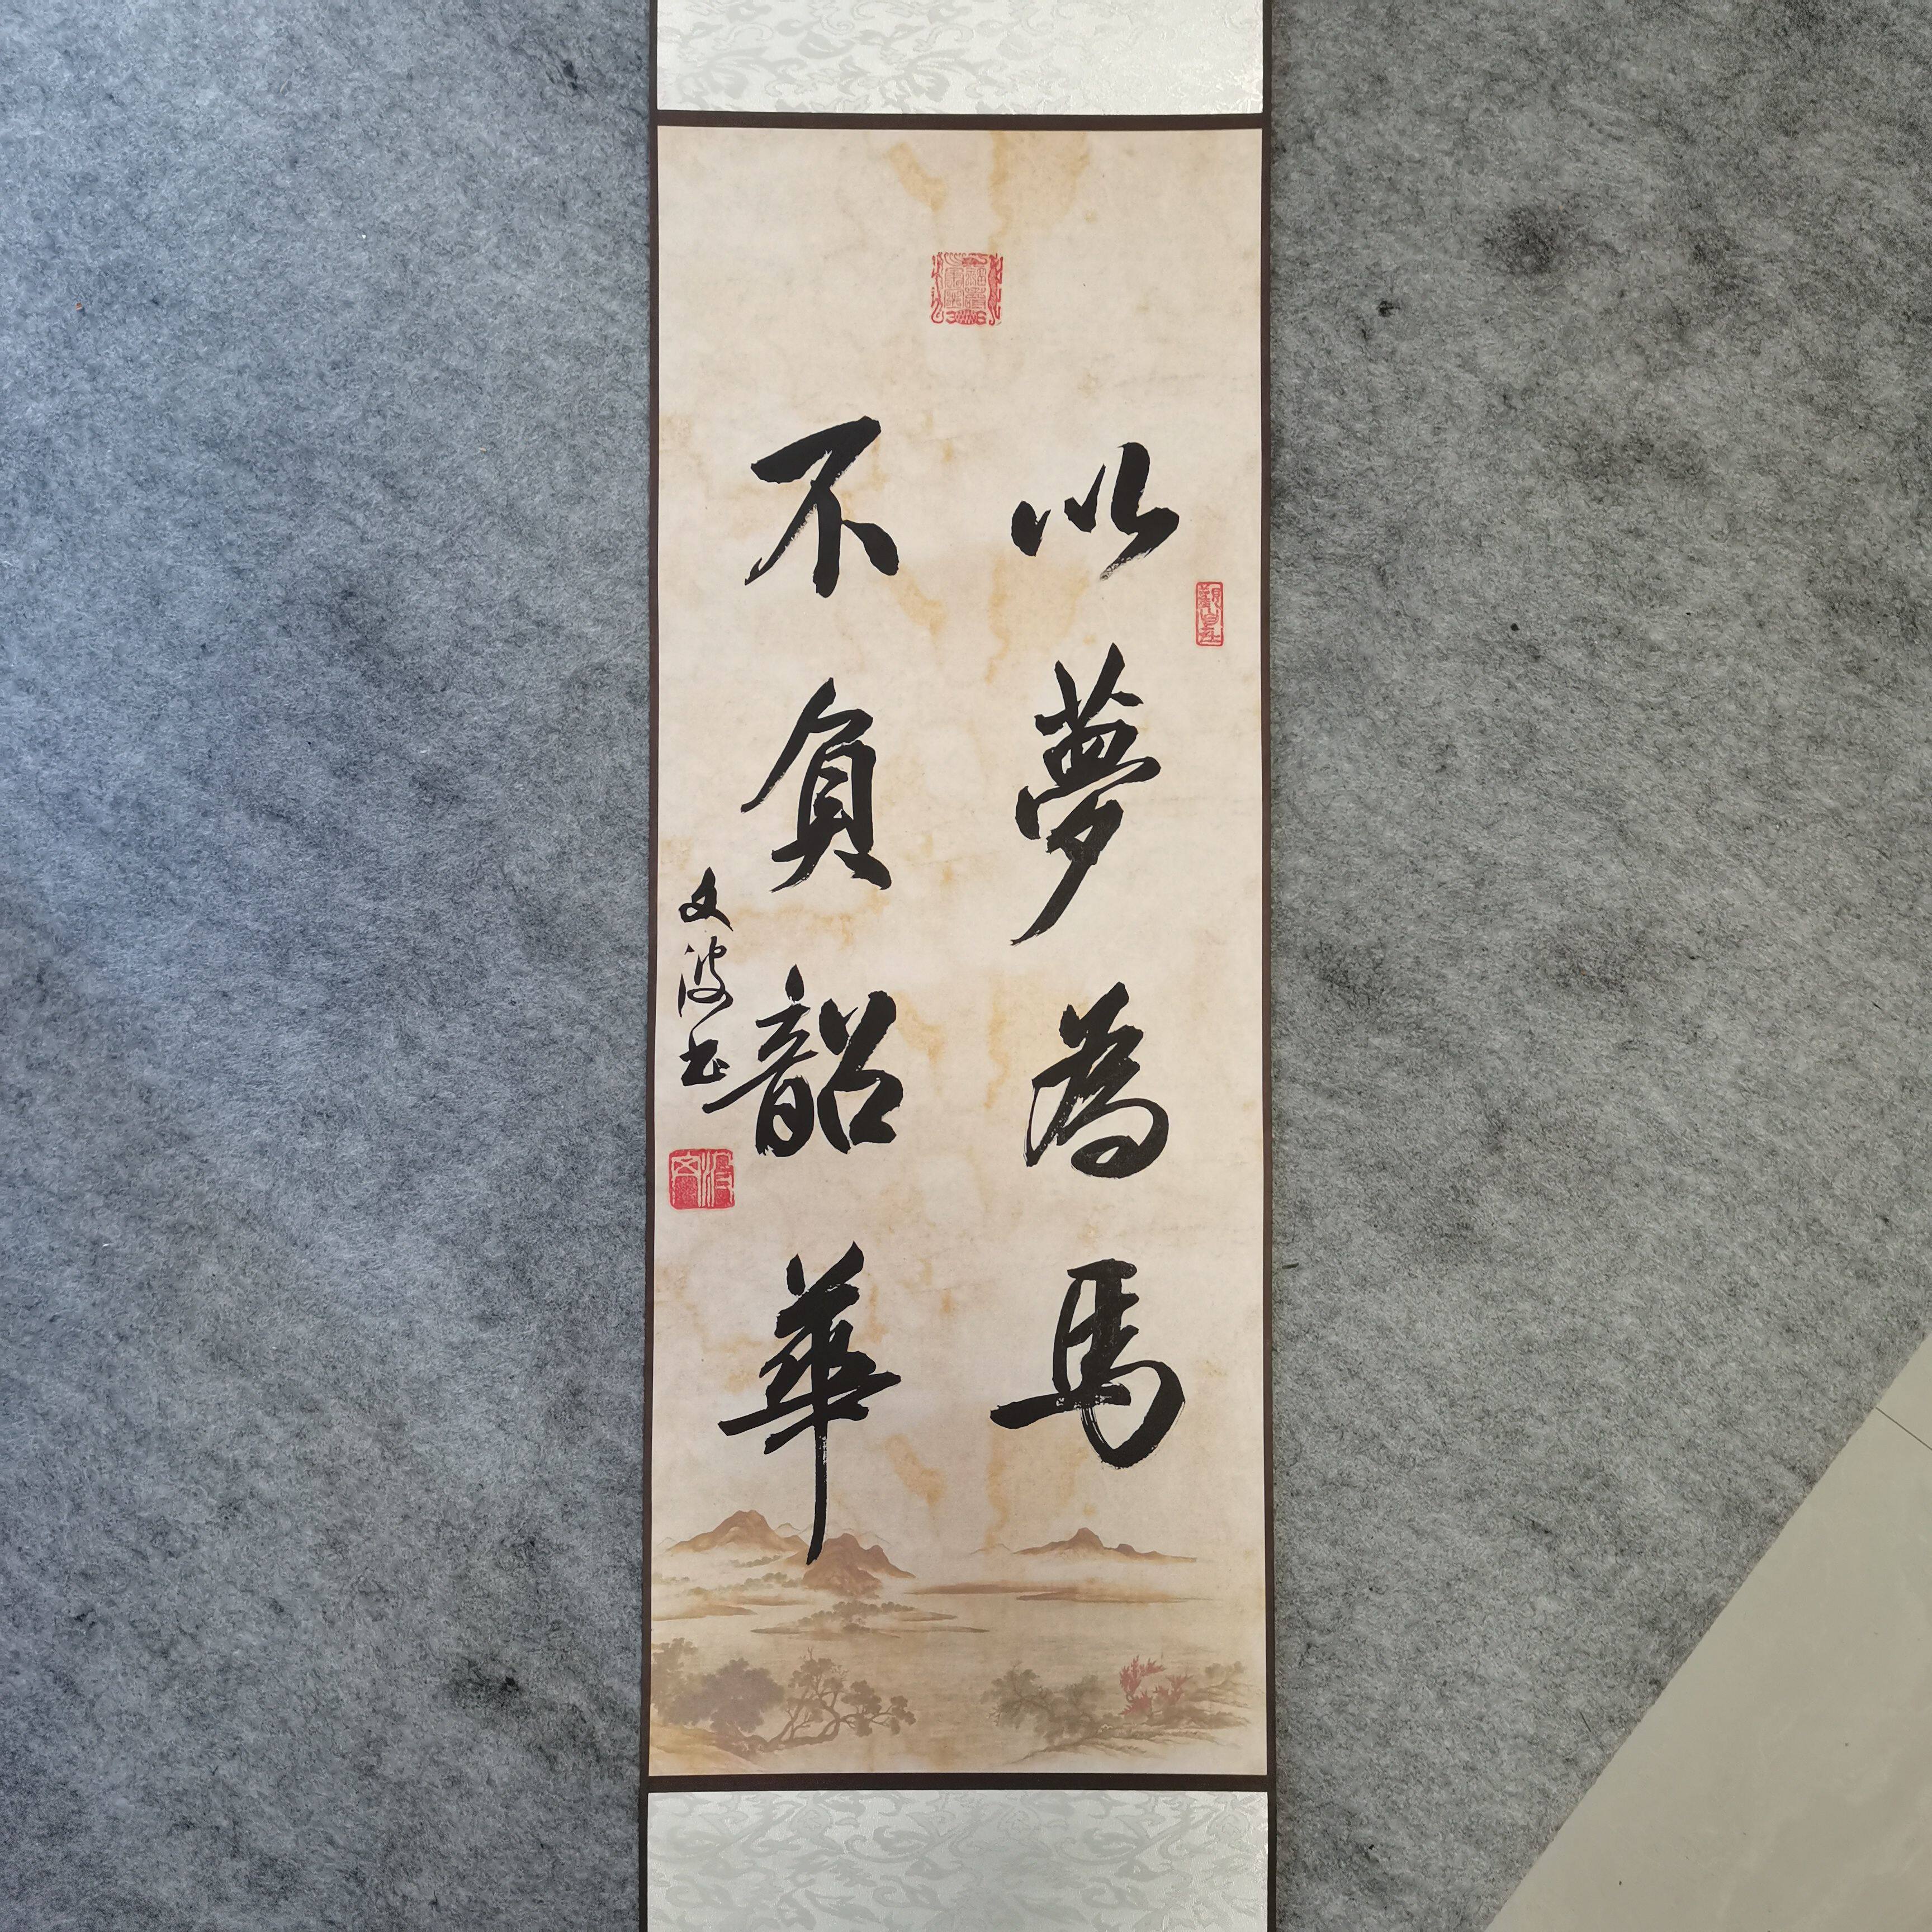 以夢為馬
不負韶華
文波书
文波